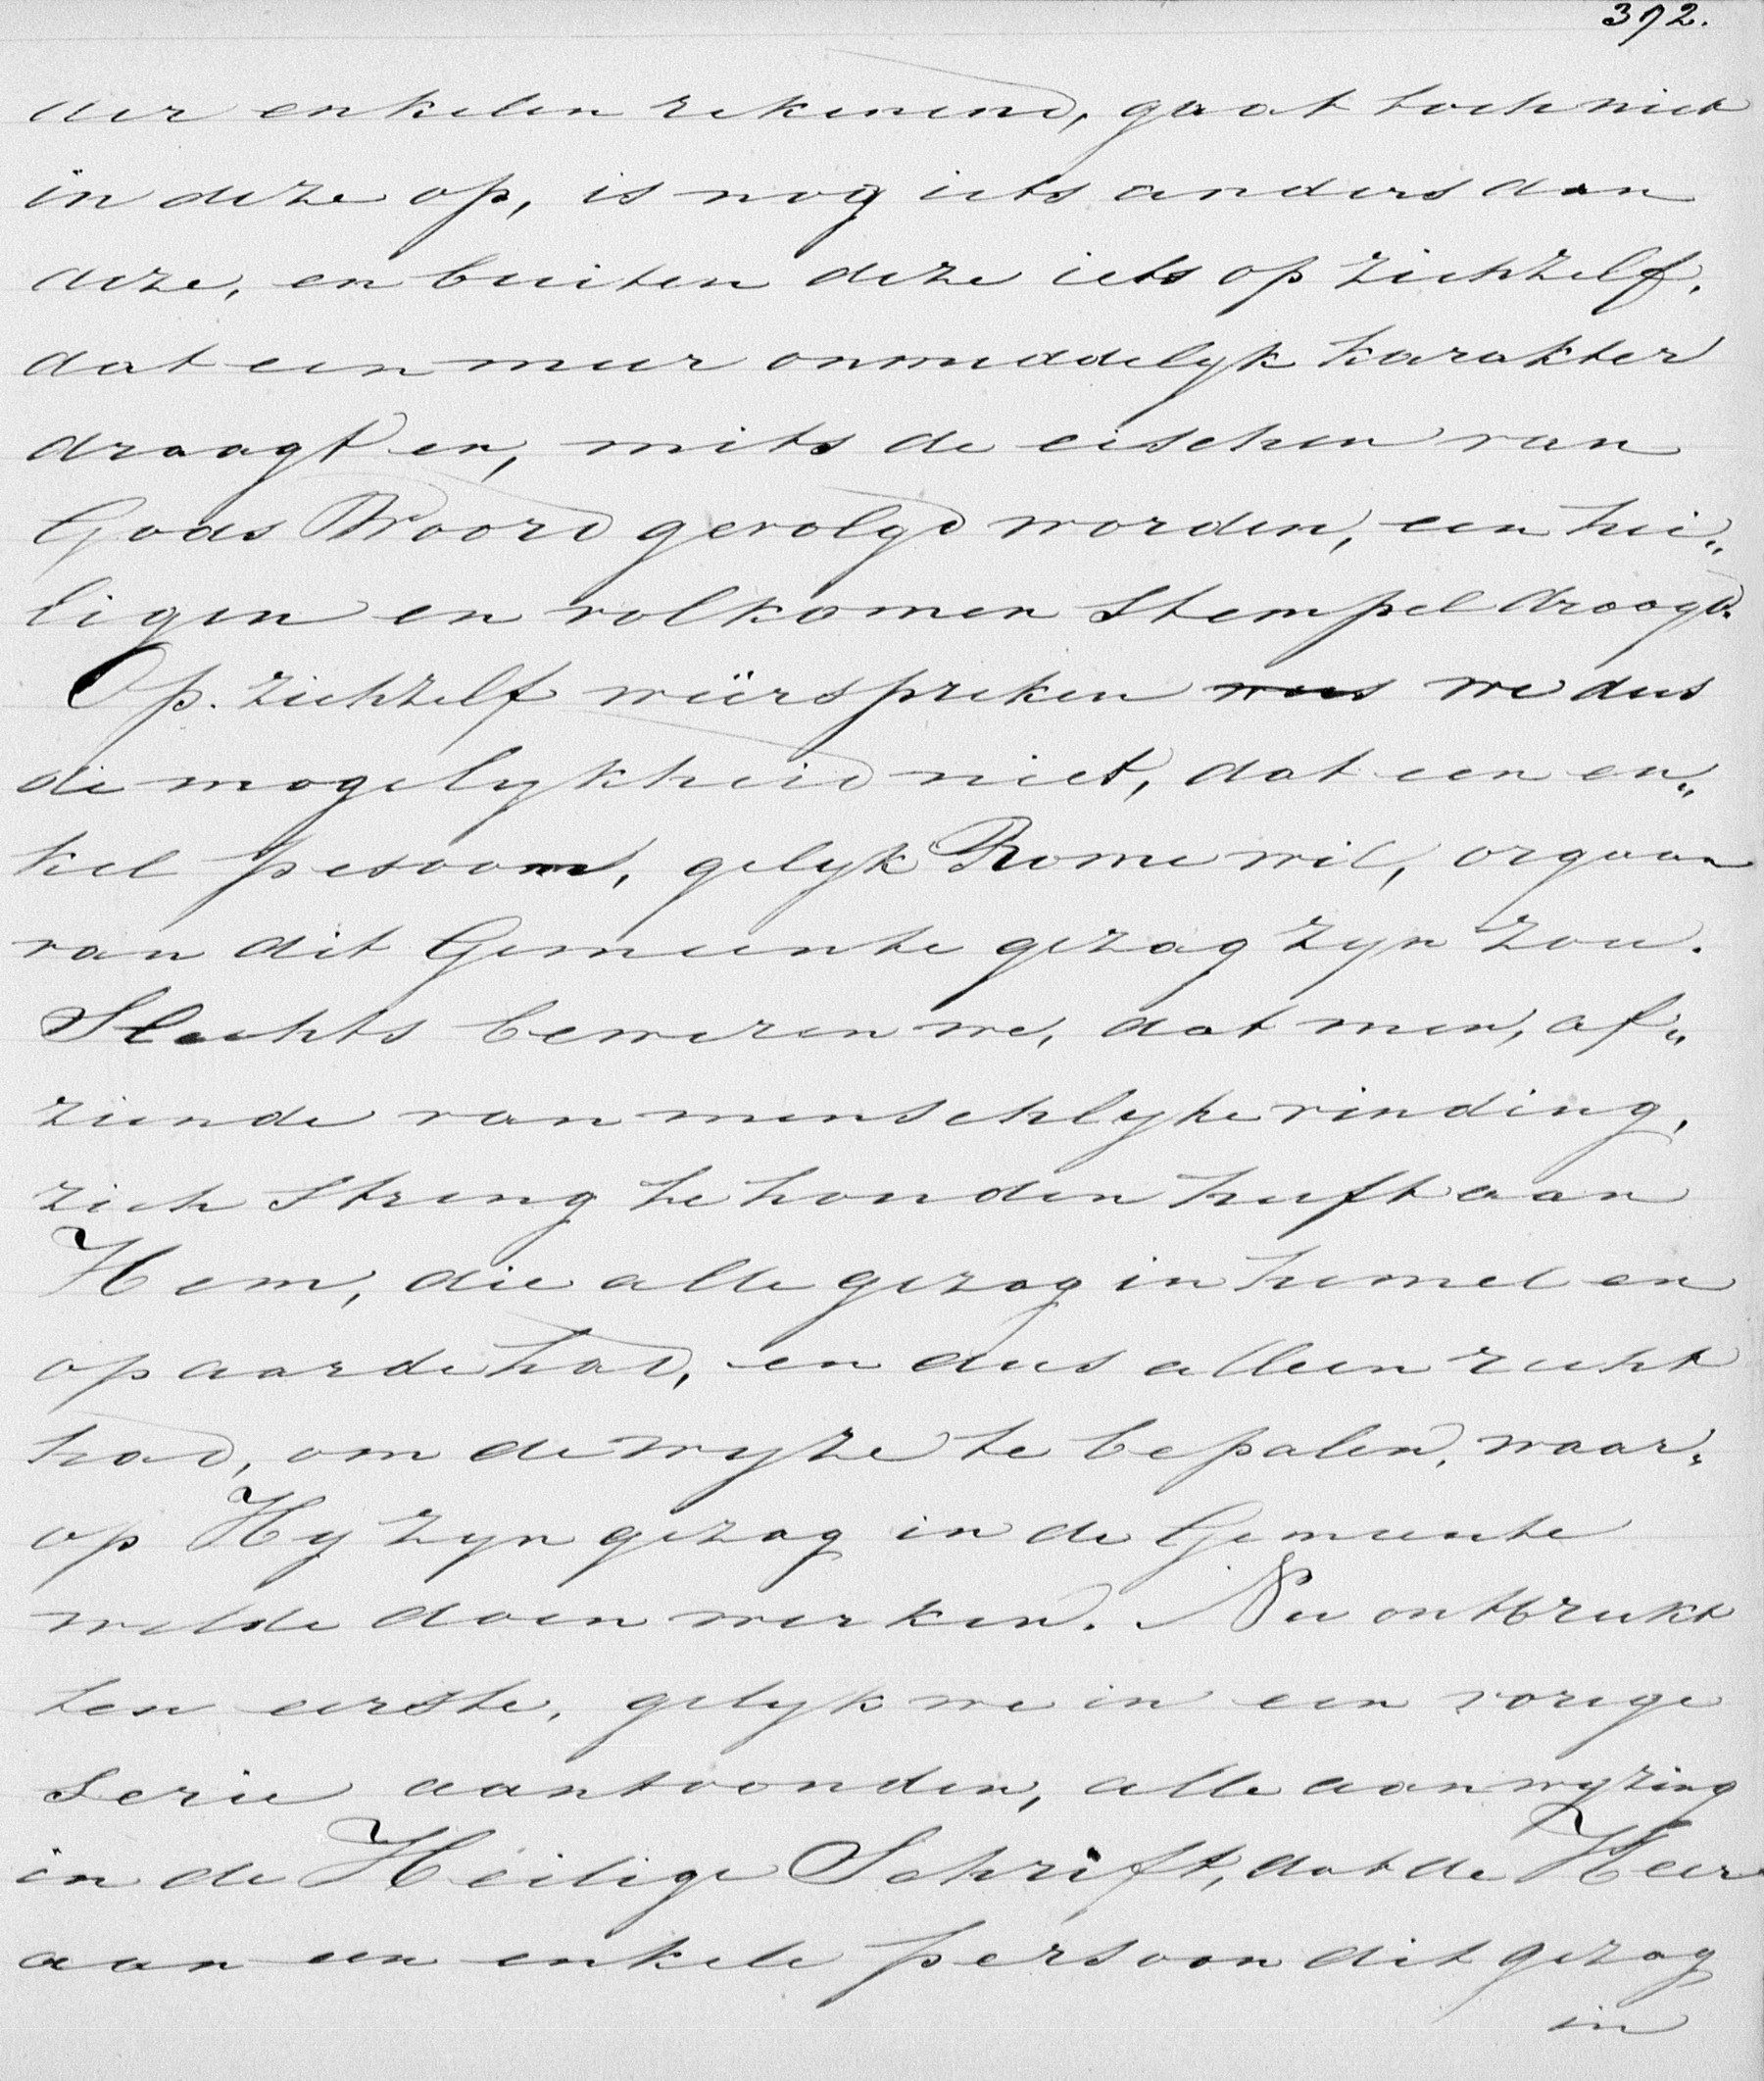 372.
der enkelen rekenend, gaat toch niet
in deze op, is nog iets anders dan
deze, en buiten deze iets op zichzelf,
dat een meer onmiddelyk karakter
draagt en, mits de eischen van
Gods Woord gevolgd worden, een hei„
ligen en volkomen stempel draagt.
Op zichzelf wiërspreken we dus
de mogelykheid niet, dat een en„
kel pesoon, gelyk Rome wil, orgaan
van dit Gemeente gezag zyn zou.
Slechts beweren we, dat men, af„
ziende van menschlyke vinding,
zich streng te houden heeft aan
Hem, die alle gezag in hemel en
op aarde had, en dus alleen recht
had, om de wyze te bepalen, waar„
op Hy zyn gezag in de Gemeente
wilde doen werken. Nu ontbreekt
ten eerste, gelyk we in een vorige
serie aantoonden, alle aanwyzing
in de Heilige Schrift, dat de Heer
aan een enkele persoon dit gezag
in